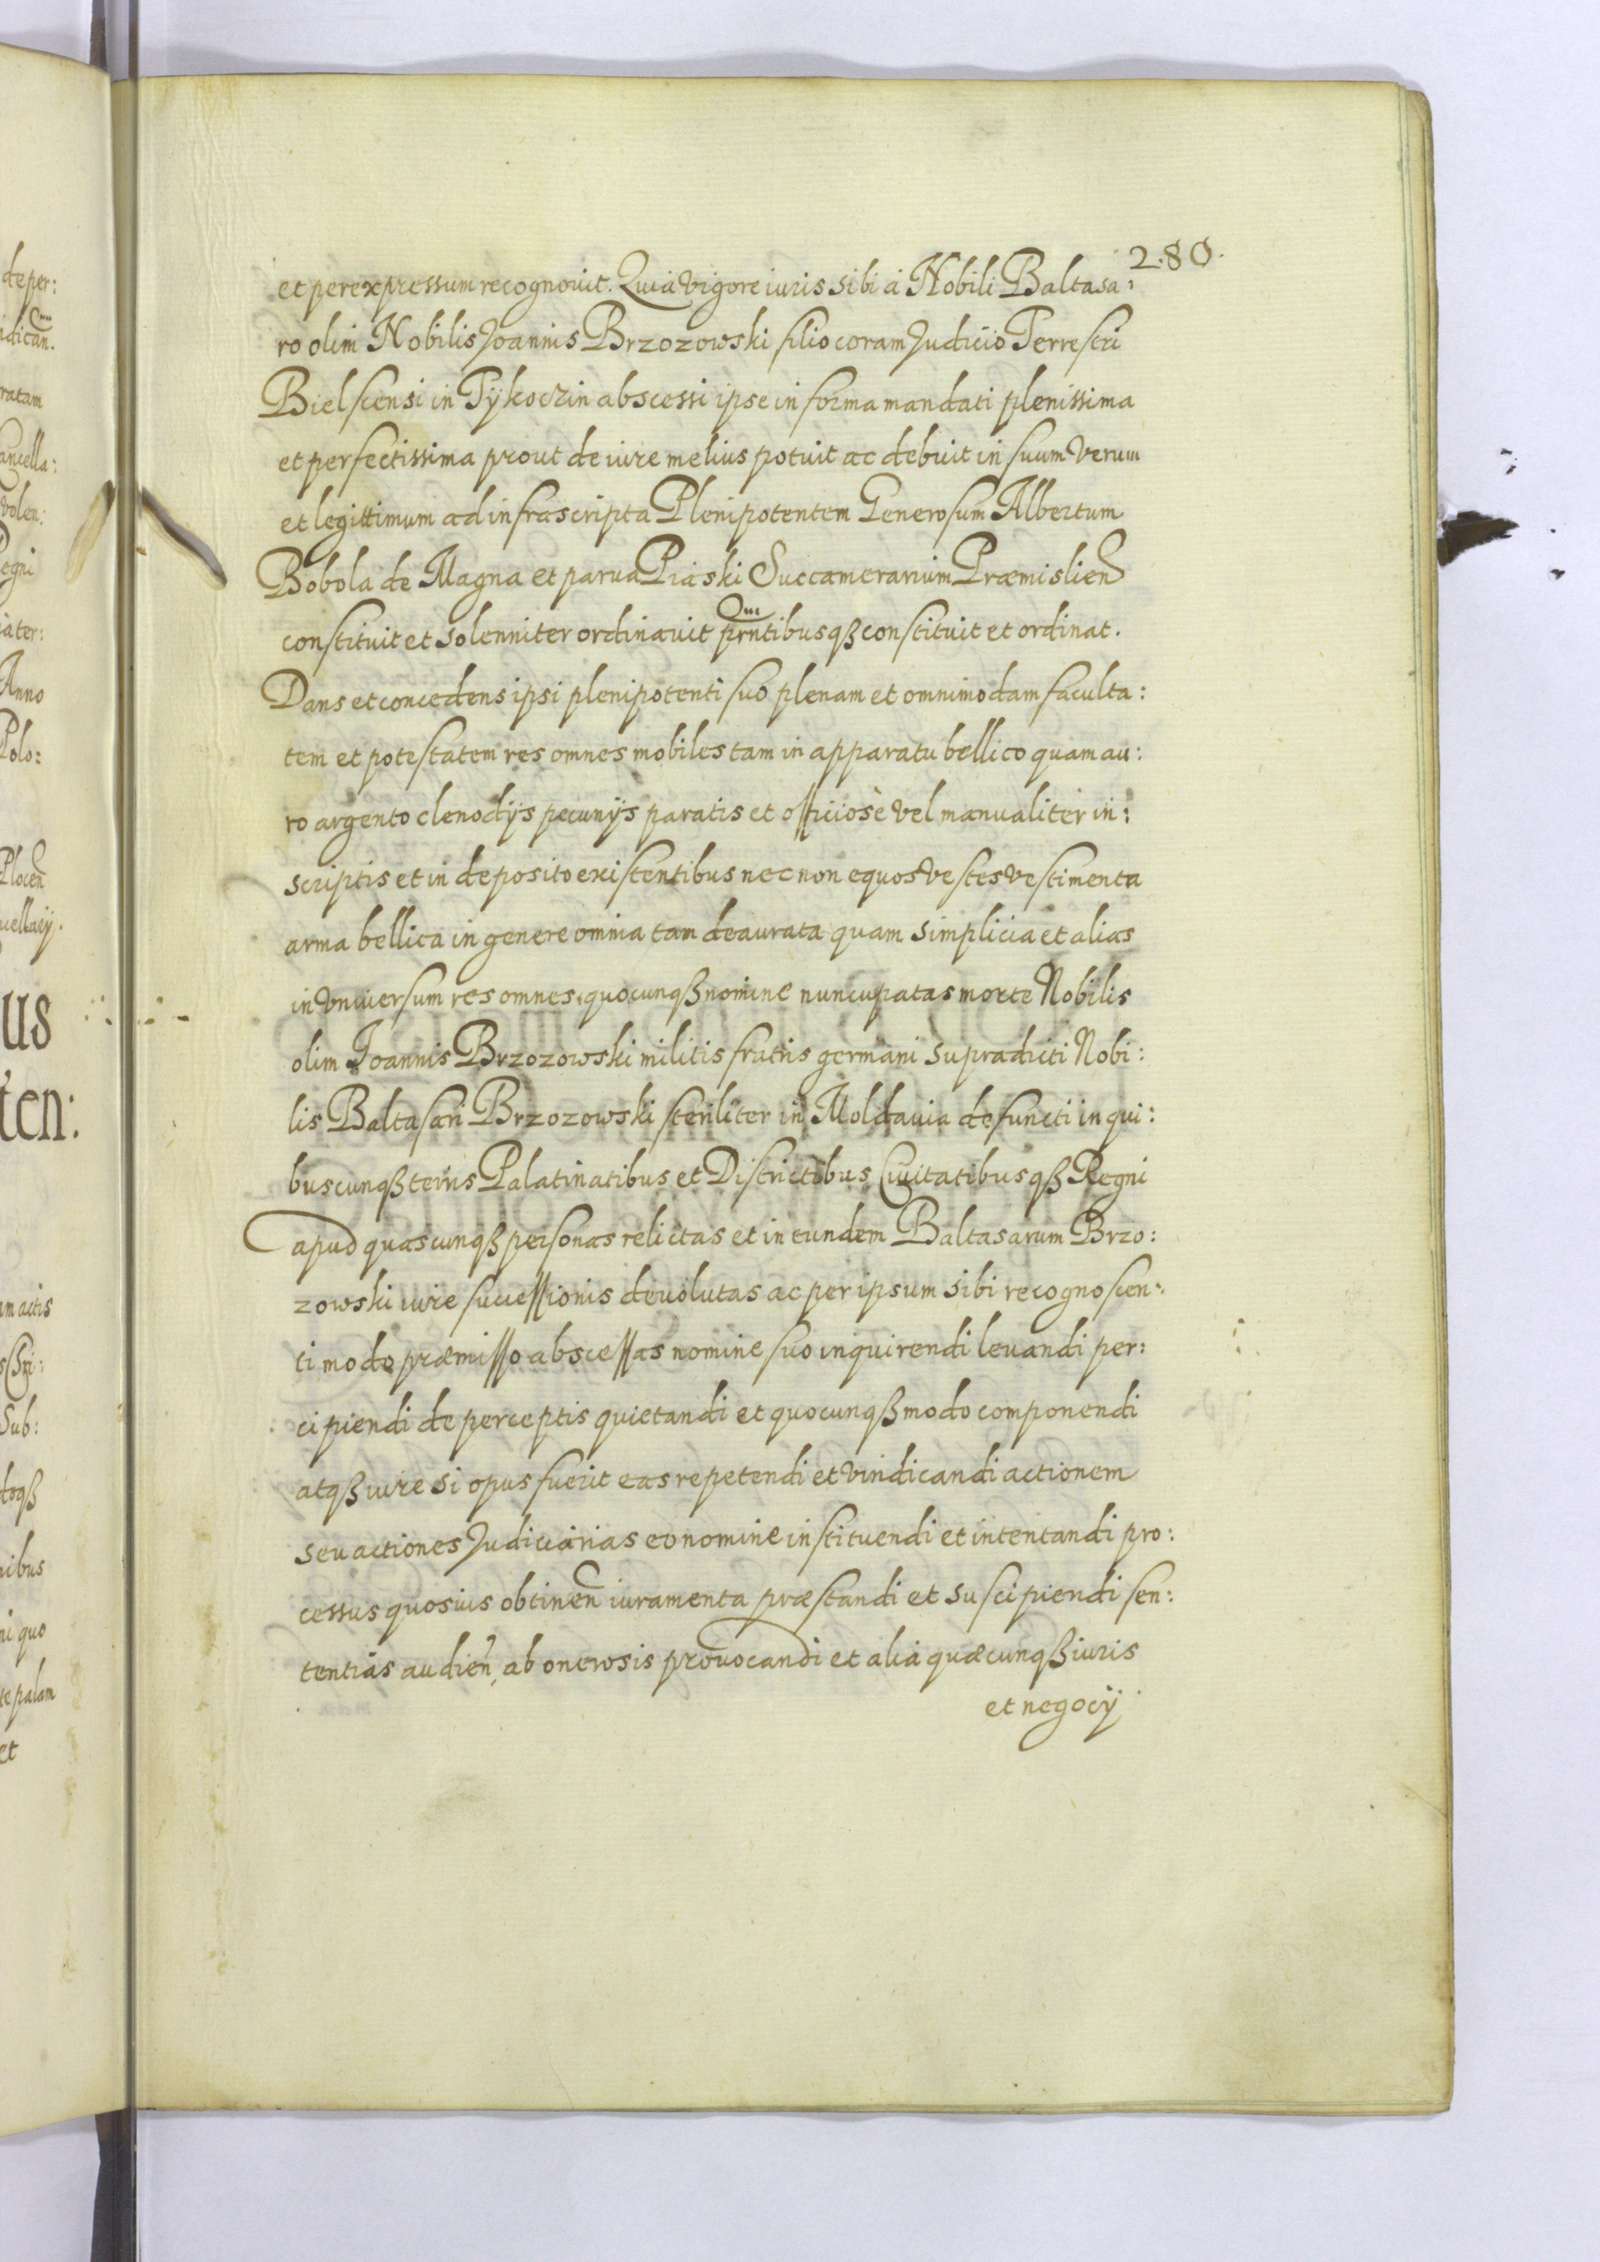 280.
et per expressum recognovit. Quia vigore iuris sibi à Nobili Baltasa:
ro olim Nobilis Joannis Brzozowski filio coram Judicio Terrestri
Bielscensi in Tÿkoczin abscessi ipse in forma mandati plenissima
et perfectissima prout de iure melius potuit ac debuit in suum verum
et legittimum ad infrascripta Plenipotentem Generosum Albertum
Bobola de Magna et parva Piaski Succamerarium Præmislien
constituit et solenniter ordinavit prntibusqß constituit et ordinat.
Dans et concedens ipsi plenipotenti suo plenam et omnimodam faculta:
tem et potestatem res omnes mobiles tam in apparatu bellico quam au:
ro argento clenodÿs pecunÿs paratis et officiosè vel manualiter in:
scriptis et in deposito existentibus nec non equos vestes vestimenta
arma bellica in genere omnia tam deaurata quam simplicia et alias
in vniuersum res omnes quocunqß nomine nuncupatas morte Nobilis
olim Joannis Brzozowski militis fratris germani supradicti Nobi:
lis Baltasari Brzozowski steriliter in Moldavia defuncti in qui:
buscunqß terris Palatinatibus et Districtibus Civitatibusqß Regni
apud quascunqß personas relictas et in eundem Baltasarum Brzo:
zowski iure successionis devolutas ac per ipsum sibi recognoscen:
ti modo præmisso abscessas nomine suo inquirendi levandi per:
cipiendi de perceptis quietandi et quocunqß modo componendi
atqß iure si opus fuerit eas repetendi et vindicandi actionem
seu actiones Judiciarias eo nomine instituendi et intentandi pro:
cessus quosvis obtinen iuramenta præstandi et suscipiendi sen:
tentias audien, ab onerosis provocandi et alia quæcunqß iuris
et negocÿ
de per:
ratam
ancella:
volen:
Regni
Anno
Polo:
Plocen
us
ten:
Sub:
ni quo
te palam
et